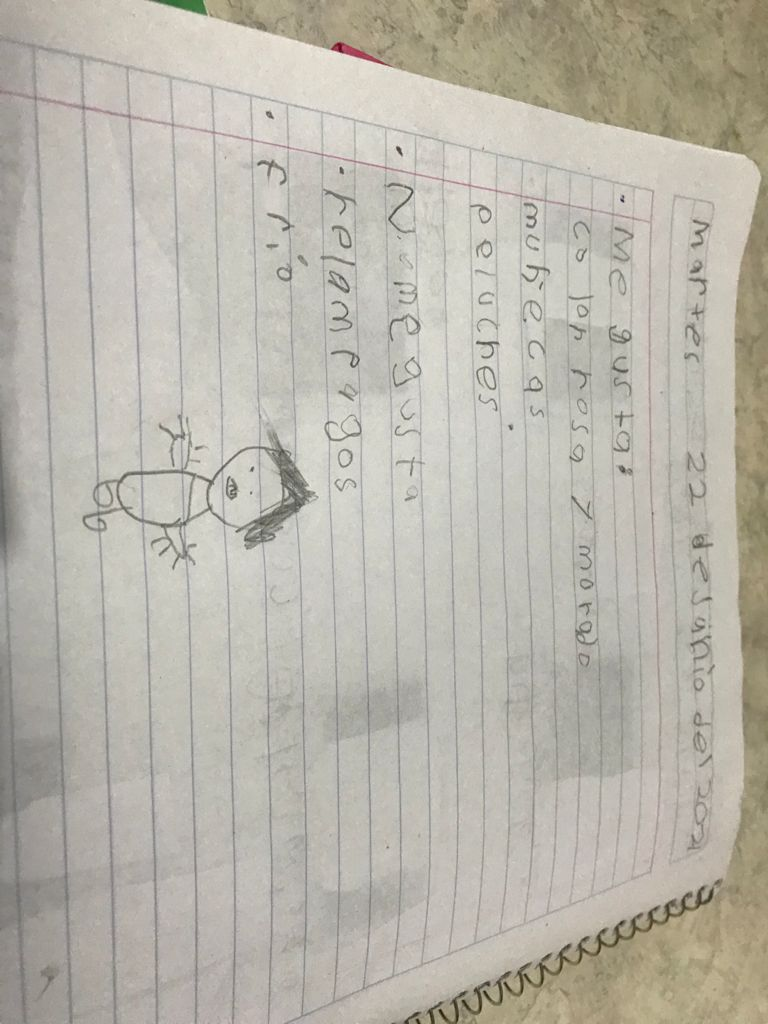 martes 22 de junio del 2021
• Me gusta:
color rosa y morado
muñecas
peluches.
• No me gusta
• relampagos
• frio